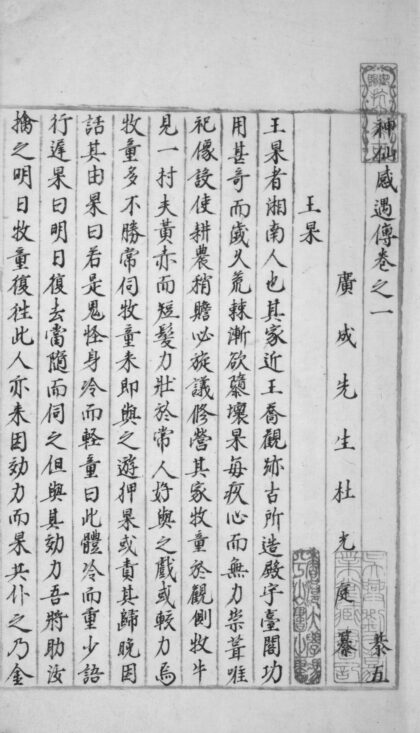 神仙感遇傳卷之一 恭五
廣成先生杜光庭纂
王杲
王杲者湘南人也其家近王喬觀跡古所造殿宇臺閣功
用甚奇而歲久荒棘漸欲隳壞杲每疚心而無力崇葺唯
祀像設使耕農稍贍必旋議修營其家牧童於觀側牧牛
見一村夫黃亦而短髮力壯於常人好與之戲或較力焉
牧童多不勝常伺牧童来即與之遊押杲或責其歸晚因
話其由杲曰若是鬼怪身冷而軽童曰此體冷而重少語
行遲杲曰明日復去當隨而伺之但與其効力吾將助汝
擒之明日牧童復往此人亦来因効力而杲共仆之乃金